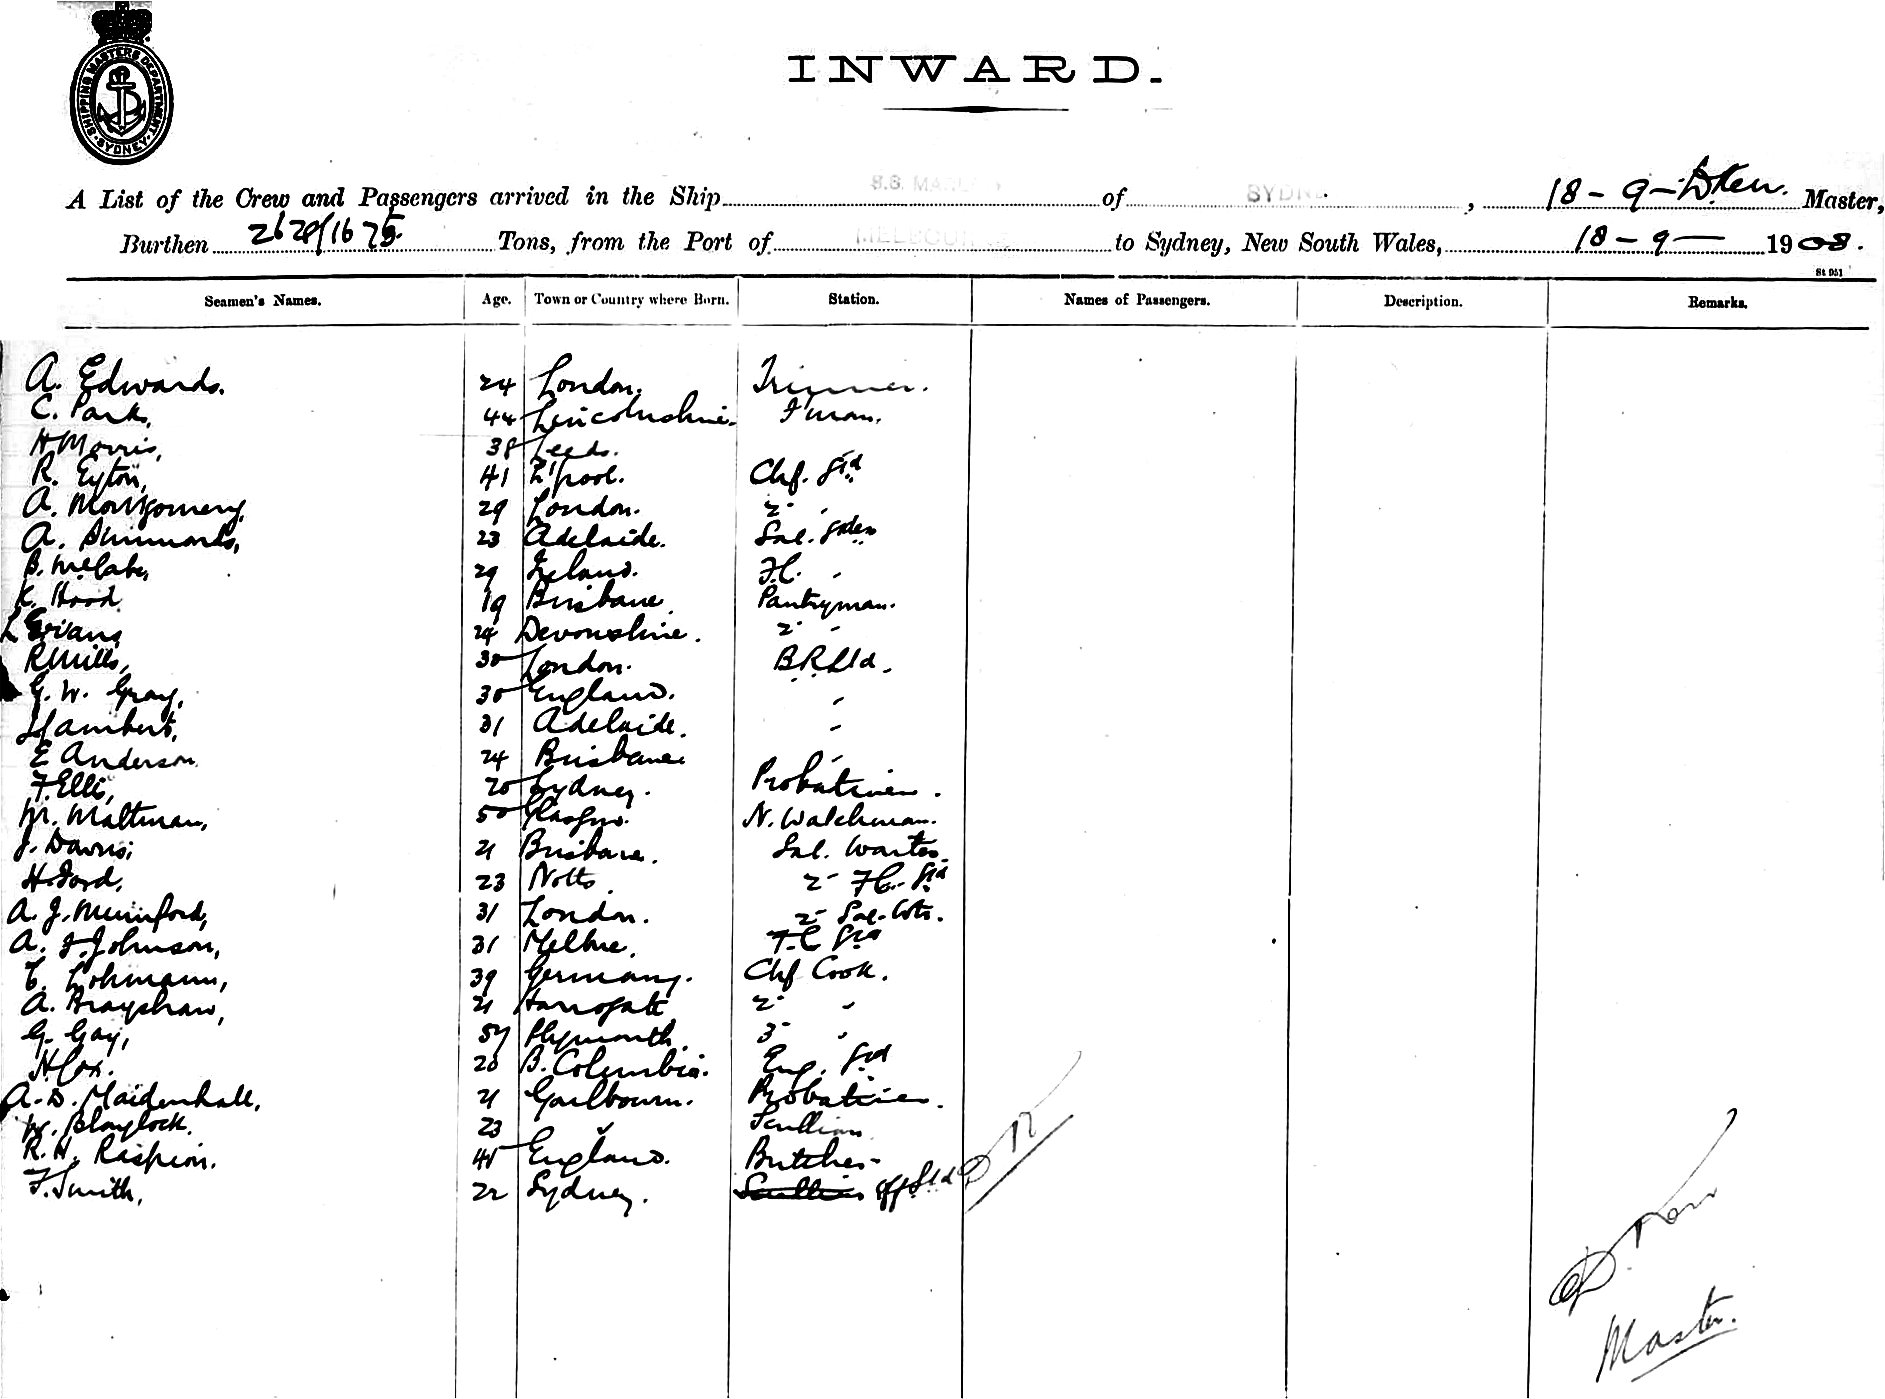 SHIPPING MASTERS DEPARTMENT. SYDNEY.
INWARD.
A List of the Crew and Passengers arrived in the Ship S.S. of SYDNEY, 18-9- Master,
Burthen 2628/1675 Tons, from the Port of MELBOURNE to Sydney, New South Wales, 18-9- 1908.
St 951
Seamen's Names. Age. Town or Country where Born. Station. Names of Passengers. Description. Remarks.
A. Edwards. 24 London. Trimmer.
C. Park, 44 Lincolnshire. F'man.
H Morris, 38 Leeds.
R. Eyton, 41 L'pool. Chf. Std
A. Montgomery, 29 London. 2 "
A. Simmonds, 23 Adelaide. Sal. Stden
B. McCabe, 29 Ireland. F.C. "
K. Hood 19 Brisbane. Pantryman.
L Evans, 24 Devonshire. 2 "
R Mills, 30 London. B.R. Std.
G. W. Gray, 30 England. "
J Lambert, 31 Adelaide. "
E Anderson 24 Brisbane "
F. Ellis, 20 Sydney. Probationer.
W. Maltman, 50 Glasgow. N. Watchman.
J. Davis, 21 Brisbane. Sal. Waiter
H. Ford, 23 Notts. 2 F.C. Std
A. J. Mumford, 31 London. 2 Sal.
A. J. Johnson, 31 Melbne. F.C Std
C. Lohmann, 39 Germany. Chf Cook.
A. Brayshaw, 21 Harrogate 2 "
G. Gay, 57 Plymouth. 3 "
H. Cox. 20 B. Columbia. Eng. Std
A. D. Maidenhall, 21 Goulbourn. Probationer.
W. Blaylock. 23 " Scullion
R. H. Raspion. 45 England. Butcher
F. Smith, 22 Sydney. Scullion Off Std
Master.